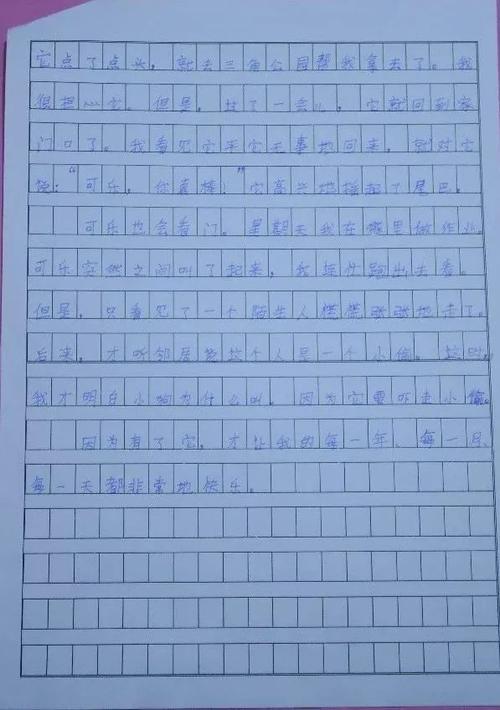 它点了点头，就去三角公园帮我拿去了。我
很担心它。但是，过了一会儿，它就回到家
门口了。我看见它平安无事地回来，就对它
说：“可乐，你真棒！”它高兴地摇起了尾巴。
可乐也会看门。星期天我在楼里做作业，
可乐突然之间叫了起来，我连忙跑出去看。
但是，只看见了一个陌生人慌慌张张地走了。
后来，才听邻居说这个人是一个小偷。这时，
我才明白小狗为什么叫。因为它要吓走小偷。
因为有了它，才让我的每一年、每一月、
每一天都非常地快乐。